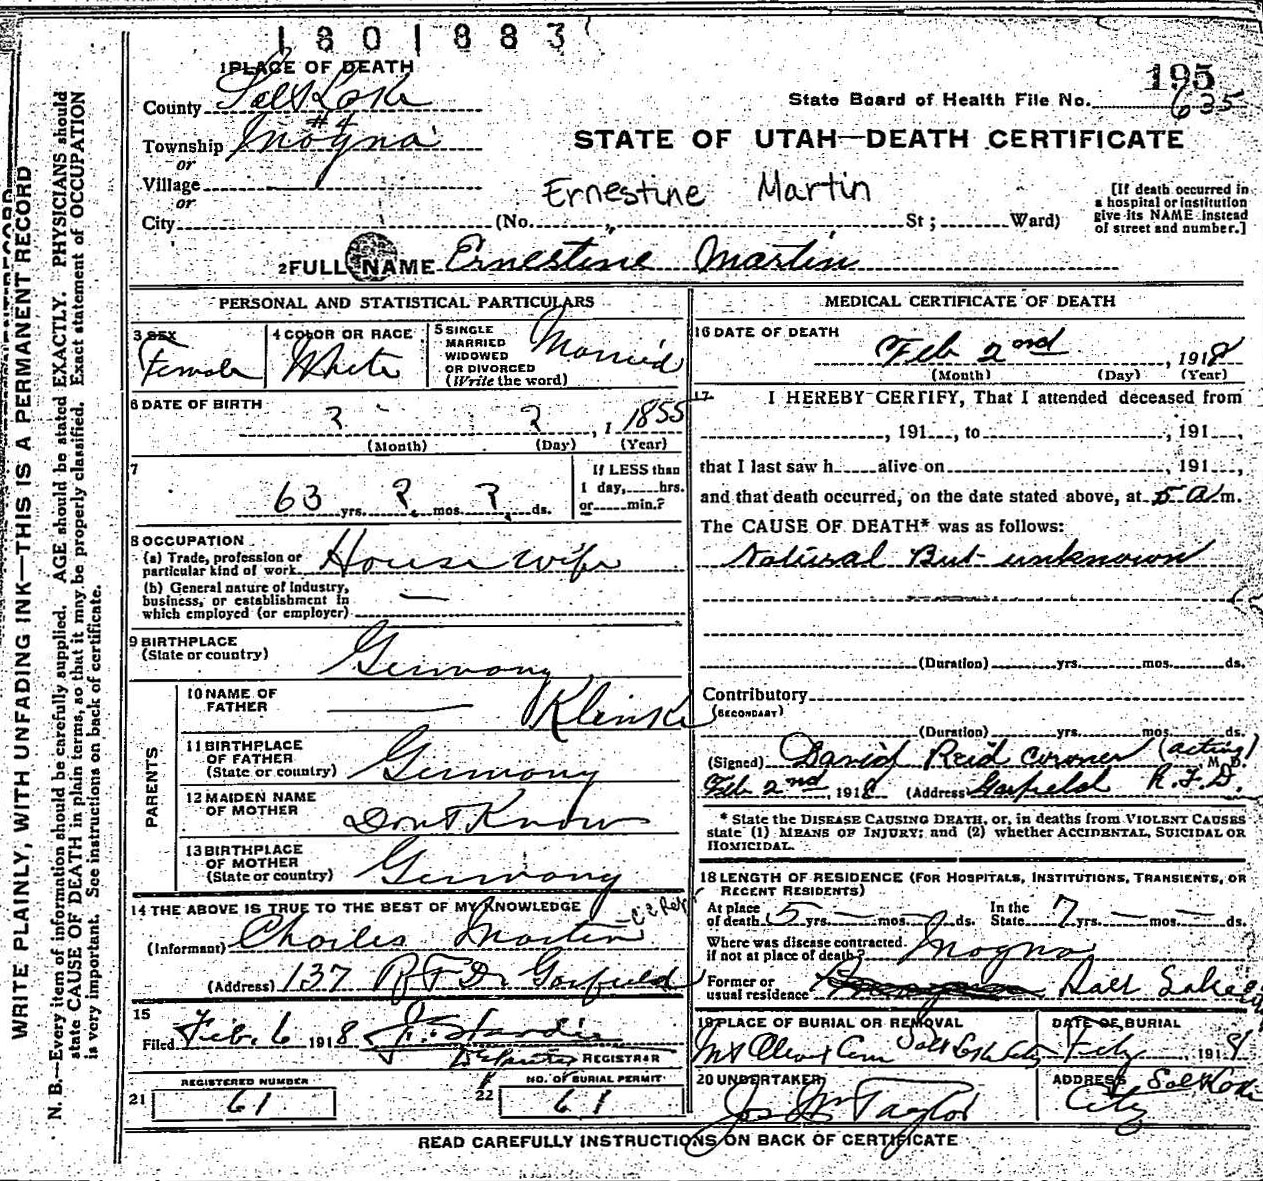 1801883
1 PLACE OF DEATH
195
County Salt Lake
State Board of Health File No. 635
#4
Township Magna
STATE OF UTAH—DEATH CERTIFICATE
or
Village
or
Ernestine Martin
[If death occurred in
a hospital or institution
give its NAME instead
of street and number.]
City (No. St; Ward)
2 FULL NAME Ernestine Martin
PERSONAL AND STATISTICAL PARTICULARS
3 SEX
Female
4 COLOR OR RACE
White
5 SINGLE
MARRIED
WIDOWED
OR DIVORCED
(Write the word)
Married
6 DATE OF BIRTH
? ? , 1 1855
(Month) (Day) (Year)
7
63 yrs. ? mos. ? ds.
If LESS than
1 day, hrs.
or min.?
8 OCCUPATION
(a) Trade, profession or
particular kind of work House wife
(b) General nature of industry,
business, or establishment in
which employed (or employer) —
9 BIRTHPLACE
(State or country)
Germany
PARENTS
10 NAME OF
FATHER
— Klinske
11 BIRTHPLACE
OF FATHER
(State or country)
Germany
12 MAIDEN NAME
OF MOTHER
Dont Know
13 BIRTHPLACE
OF MOTHER
(State or country)
Germany
14 THE ABOVE IS TRUE TO THE BEST OF MY KNOWLEDGE
(Informant) Charles Martin
(Address) 137 R F D Garfield
15
Filed Feb. 6 1918
Deputy REGISTRAR
REGISTERED NUMBER
21 61
NO. OF BURIAL PERMIT
22 61
MEDICAL CERTIFICATE OF DEATH
16 DATE OF DEATH
Feb 2nd , 1918
(Month) (Day) (Year)
17 I HEREBY CERTIFY, That I attended deceased from
, 191 , to , 191 ,
that I last saw h alive on , 191 ,
and that death occurred, on the date stated above, at 5 a. m.
The CAUSE OF DEATH* was as follows:
Natural But unknown
(Duration) yrs. mos. ds.
Contributory
(SECONDARY)
(Duration) yrs. mos. ds.
(Signed) David Reid Coroner (acting) M. D.
Feb 2nd , 1918 (Address) Garfield R.F.D.
* State the DISEASE CAUSING DEATH, or, in deaths from VIOLENT CAUSES
state (1) MEANS OF INJURY; and (2) whether ACCIDENTAL, SUICIDAL OR
HOMICIDAL.
18 LENGTH OF RESIDENCE (FOR HOSPITALS, INSTITUTIONS, TRANSIENTS, OR
RECENT RESIDENTS)
At place
of death 5 yrs. — mos. ds.
In the
State 7 yrs. — mos. — ds.
Where was disease contracted.
if not at place of death? Magna
Former or
usual residence Salt Lake City
19 PLACE OF BURIAL OR REMOVAL
Mt Olivet Cem Salt Lake City
DATE OF BURIAL
, 191
20 UNDERTAKER
Jos Wm Taylor
ADDRESS Salt Lake
City
READ CAREFULLY INSTRUCTIONS ON BACK OF CERTIFICATE
WRITE PLAINLY, WITH UNFADING INK—THIS IS A PERMANENT RECORD
N. B.—Every item of information should be carefully supplied. AGE should be stated EXACTLY. PHYSICIANS should
state CAUSE OF DEATH in plain terms, so that it may be properly classified. Exact statement of OCCUPATION
is very important. See instructions on back of certificate.